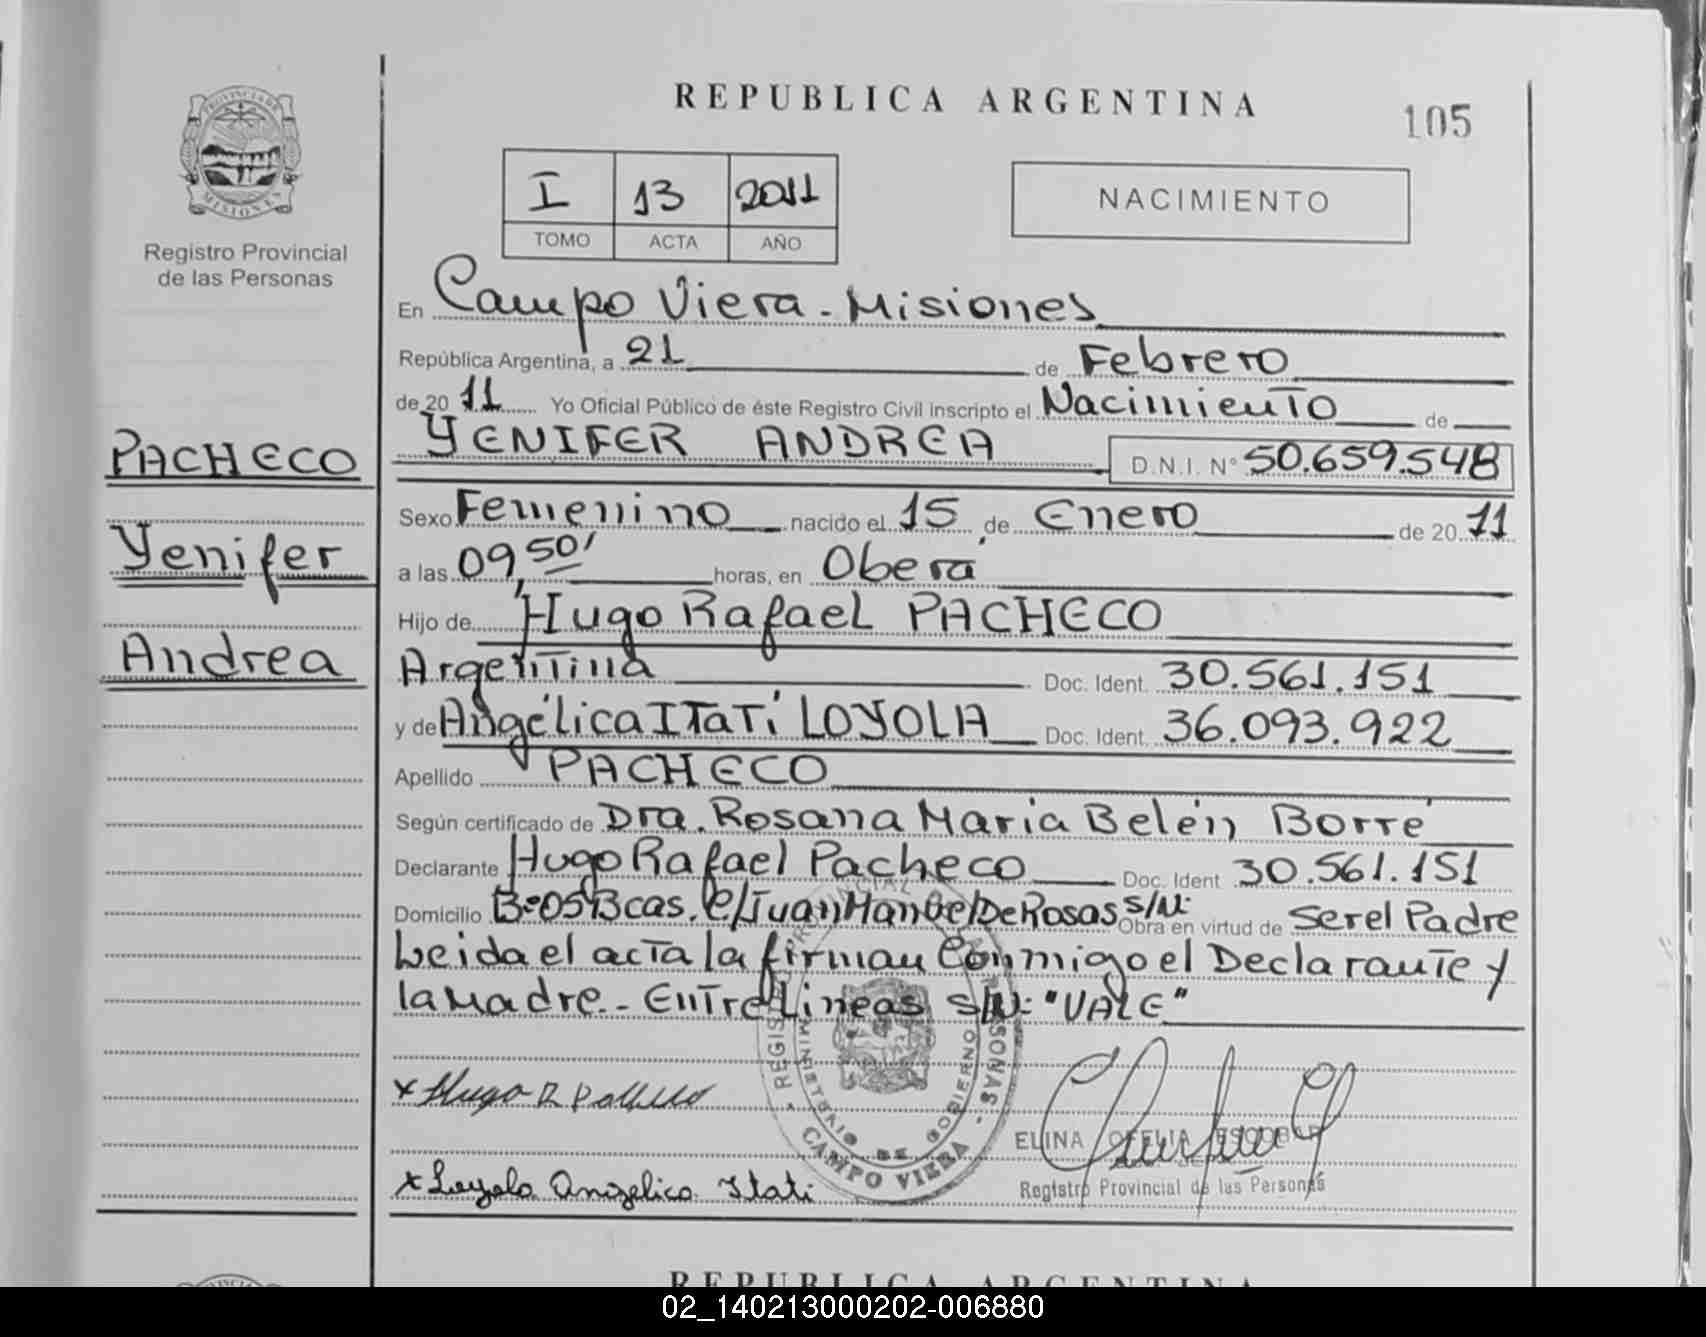 REPUBLICA ARGENTINA
105
PROVINCIA DE
MISIONES
Registro Provincial
de las Personas
I 13 2011
TOMO ACTA AÑO
NACIMIENTO
En Campo Viera - Misiones
República Argentina, a 21 de Febrero
de 20 11 Yo Oficial Público de éste Registro Civil inscripto el Nacimiento de
YENIFER ANDREA D.N.I. N° 50.659.548
PACHECO
Yenifer
Andrea
Sexo Femenino nacido el 15 de Enero de 20 11
a las 09,50' horas, en Oberá
Hijo de Hugo Rafael PACHECO
Argentina Doc. Ident. 30.561.151
y de Angélica ITatí LOYOLA Doc. Ident. 36.093.922
Apellido PACHECO
Según certificado de Dra. Rosana María Belén Borré
Declarante Hugo Rafael Pacheco Doc. Ident 30.561.151
Domicilio B° 0513cas. C/Juan Manuel De Rosas s/N: Obra en virtud de Ser el Padre
Leida el acta la firman Conmigo el Declarante y
la Madre.- Entre Lineas s/N: "VALE"
x Hugo R Pacheco
REGISTRO PROVINCIAL DE LAS PERSONAS -
MINISTERIO DE GOBIERNO
CAMPO VIERA
ELINA OFELIA ESCOBAR
Registro Provincial de las Personas
x Loyola Angelica Itati
REPUBLICA ARGENTINA
02_140213000202-006880